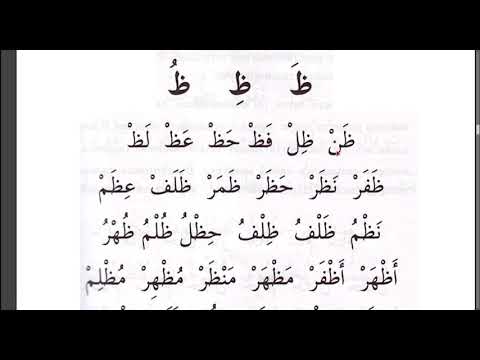 ظَ ظِ ظُ
ظَنْ ظِلْ فَظْ حَظْ عَظْ لَظْ
ظَفَرْ نَظَرْ حَظَرْ ظَمَرْ ظَلَفْ عِظَمْ
نَظْمُ ظَلْفُ ظِلْفُ حِظْلُ ظُلْمُ ظُهْرُ
أَظْهَرْ أَظْفَرْ مَظْهَرْ مَنْظَرْ مُظْهِرْ مُظْلِمْ